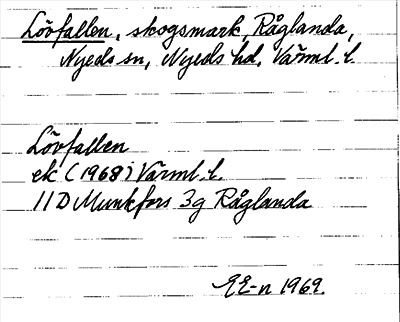 Lövfallen, skogsmark, Råglanda,
Nyeds sn, Nyeds hd, Värml. l.
Lövfallen
ek (1968) Värml. l.
11D Munkfors 3g Råglanda
EE-n 1969.